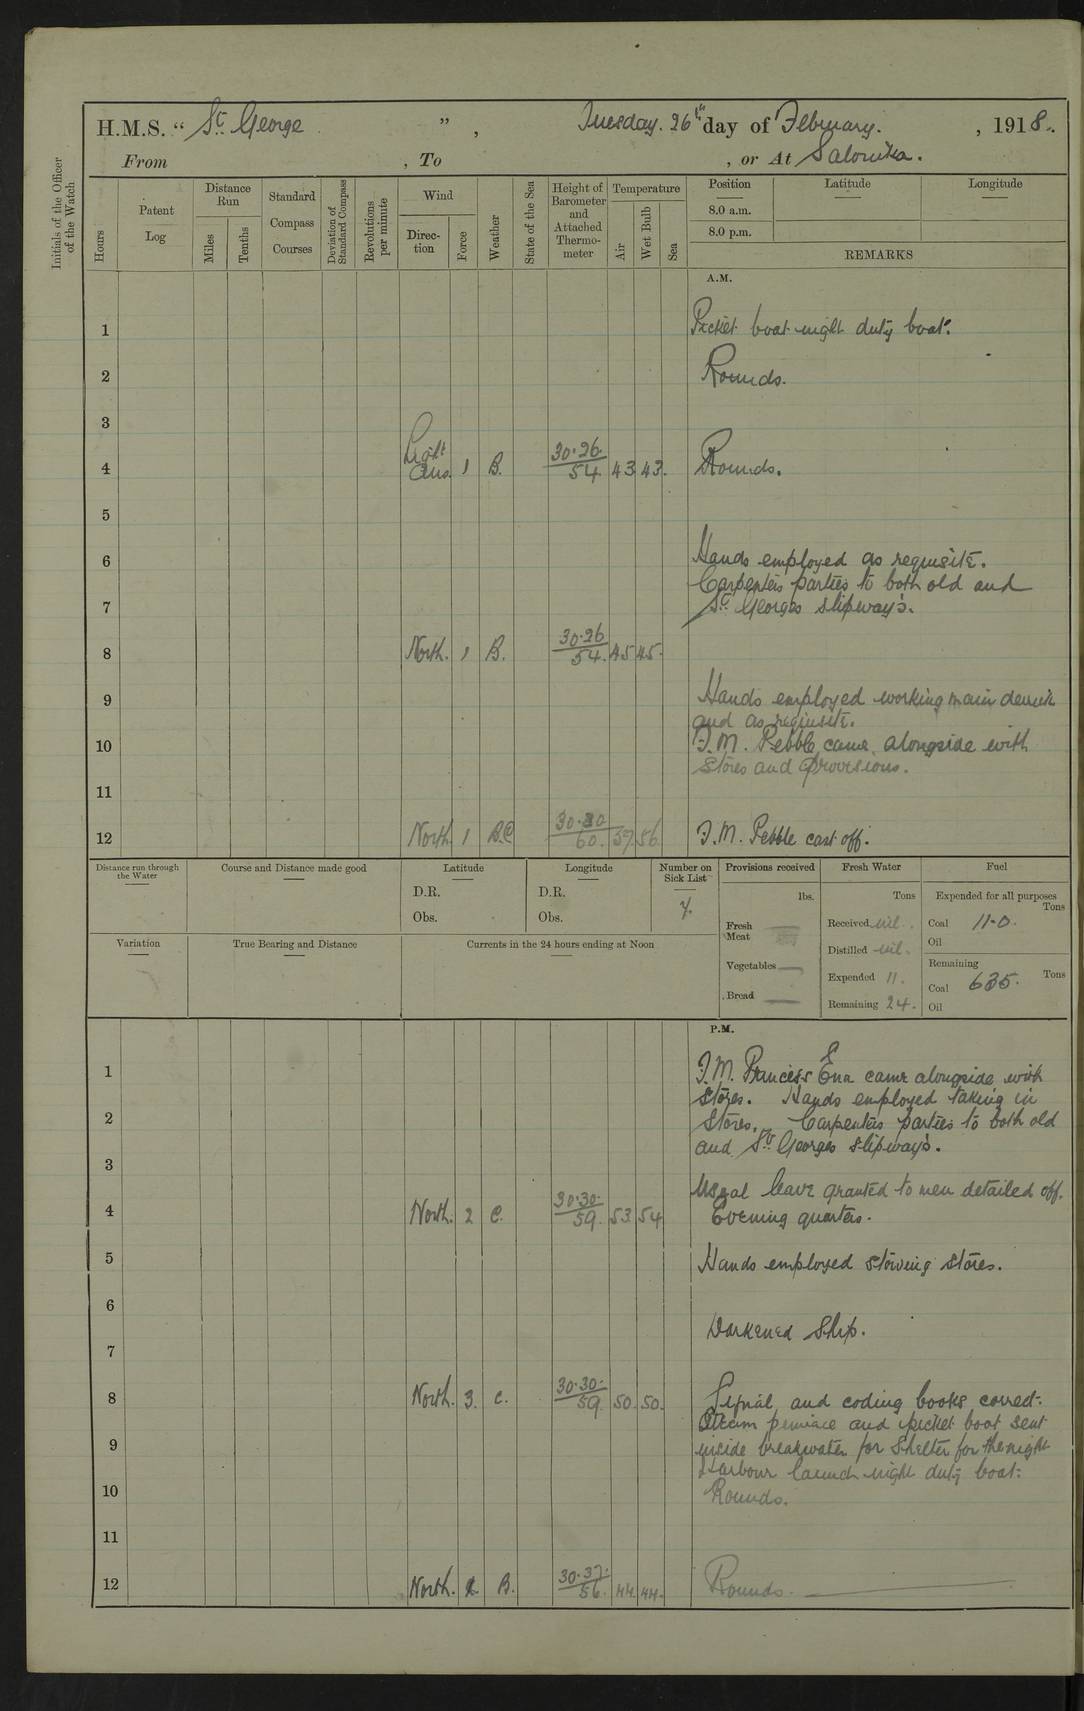 H.M.S. “ St George ” , Tuesday. 26th day of February. , 1918.
From , To , or At Salonika.
Initials of the Officer of the Watch
Hours
Patent Log
Distance Run
Miles
Tenths
Standard Compass Courses
Deviation of Standard Compass
Revolutions per minute
Wind
Direction
Force
Weather
State of the Sea
Height of Barometer and Attached Thermometer
Temperature
Air
Wet Bulb
Sea
Position
Latitude
Longitude
8.0 a.m.
8.0 p.m.
REMARKS
A.M.
1 Picket boat night duty boat.
2 Rounds.
3
4 Light Airs. 1 B. 30.26 54 43 43. Rounds.
5
6 Hands employed as requisite.
Carpenters parties to both old and
7 St Georges slipways.
8 North. 1 B. 30.26 54. 45 45.
9 Hands employed working main derrick
and as requisite.
10 F.M. Pebble came alongside with
stores and provisions.
11
12 North 1 B.C 30.30 60. 57. 56. F.M. Pebble cast off.
Distance run through the Water
Course and Distance made good
Latitude
D.R.
Obs.
Longitude
D.R.
Obs.
Number on Sick List
Provisions received
lbs.
Fresh Meat
Vegetables
Bread
Fresh Water
Tons
Received nil.
Distilled nil.
Expended 11.
Remaining 24.
Fuel
Expended for all purposes
Tons
Coal 11.0.
Oil
Remaining
Tons
Coal 635.
Oil
Variation
True Bearing and Distance
Currents in the 24 hours ending at Noon
P.M.
1 F.M. Princess Ena came alongside with
stores. Hands employed taking in
2 stores. Carpenters parties to both old
and St Georges slipways.
3
Usual leave granted to men detailed off.
4 North. 2 C. 30.30. 59. 53. 54 Evening quarters.
5 Hands employed stowing stores.
6
Darkened Ship.
7
8 North. 3. C. 30.30. 59. 50. 50. Signal and coding books correct.
Steam pinnace and picket boat sent
9 inside breakwater for shelter for the night
Harbour launch night duty boat.
10 Rounds.
11
12 North. 2. B. 30.37. 56. 44. 44. Rounds.